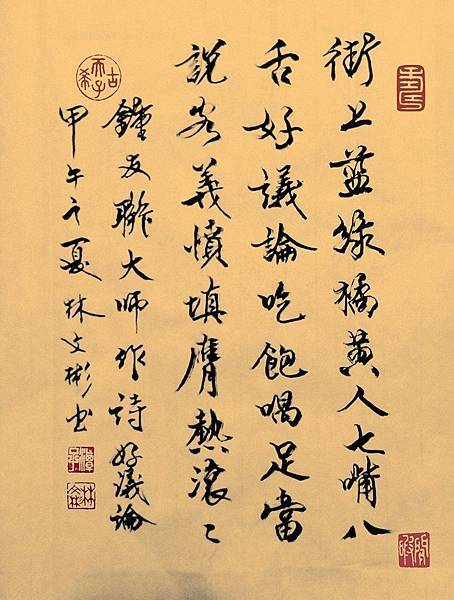 街上藍綠橘黃人七嘴八
舌好議論吃飽喝足當
說客義憤填膺熱滾〻
鍾友聯大師作詩 好議論
甲午之夏林文彬書
古希天子